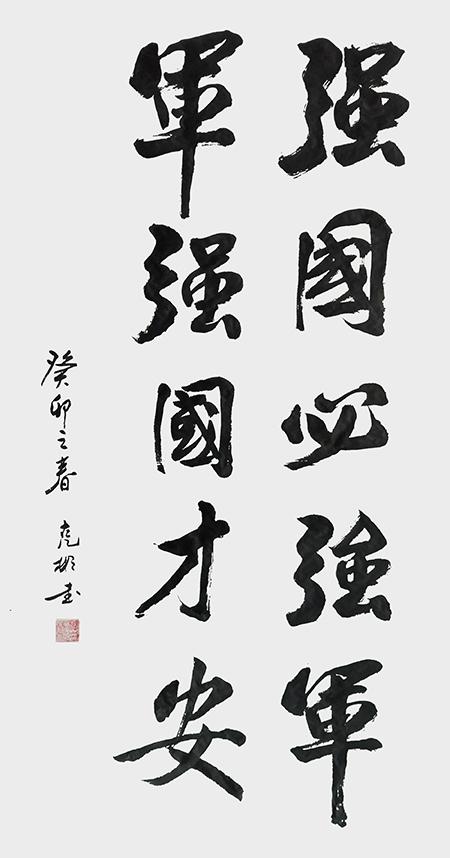 强國必強軍
軍强國才安
癸卯之春 彪彬书